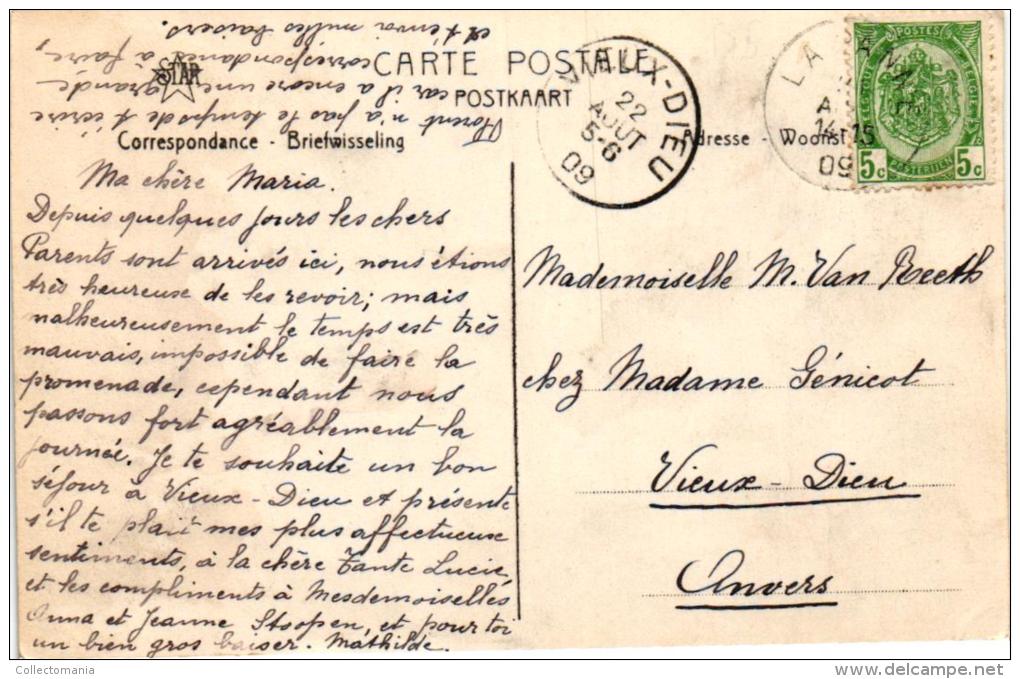 CARTE POSTALE
POSTKAART
STAR
Correspondance - Briefwisseling
Adresse - Woonst
VIEUX-DIEU
22
AOUT
5-6
09
LA
A
14-15
09
POSTES
5c 5c
POSTERIJEN
Ma chère Maria.
Depuis quelques jours les chers
Parents sont arrivés ici, nous étions
très heureuse de les revoir; mais
malheureusement le temps est très
mauvais, impossible de faire la
promenade, cependant nous
passons fort agréablement la
journée. Je te souhaite un bon
séjour à Vieux-Dieu et présente
s'il te plait mes plus affectueuse
sentiments, à la chère Tante Lucie,
et les compliments à Mesdemoiselles
Anna et Jeanne Stoopen, et pour toi
un bien gros baiser. Mathilde.
Florent n'a pas le temps de t'écrire
car il a encore une grande
correspondance à faire,
et t'envoi milles baisers.
Mademoiselle M. Van Reeth
chez Madame Génicot
Vieux-Dieu
Anvers
Collectomania
www.delcampe.net